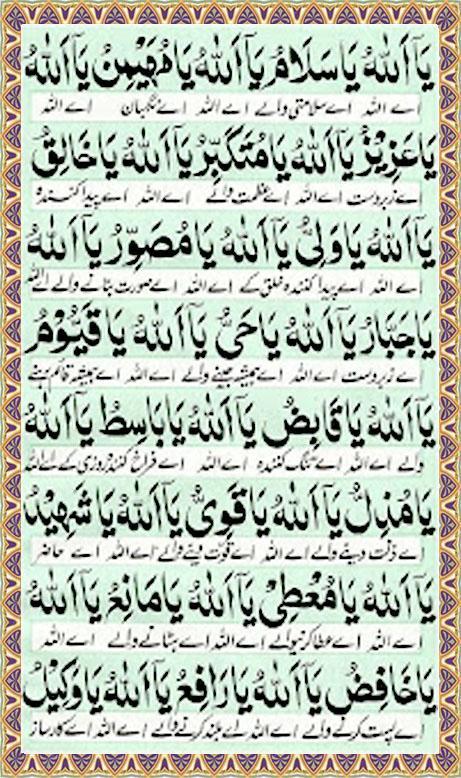 يَآ اَللّٰهُ يَا سَلَامُ يَآ اَللّٰهُ يَا مُهَيْمِنُ يَآ اَللّٰهُ
اے اللہ اے سلامتی والے اے اللہ اے نگہبان اے اللہ
يَا عَزِيْزُ يَآ اَللّٰهُ يَا مُتَكَبِّرُ يَآ اَللّٰهُ يَا خَالِقُ
اے زبردست اے اللہ اے عظمت والے اے اللہ اے پیدا کنندہ
يَآ اَللّٰهُ يَا وَلِىُّ يَآ اَللّٰهُ يَا مُصَوِّرُ يَآ اَللّٰهُ
اے اللہ اے پیدا کنندہ خلق کے اے اللہ اے صورت بنانے والے اے اللہ
يَا جَبَّارُ يَآ اَللّٰهُ يَا حَىُّ يَآ اَللّٰهُ يَا قَيُّوْمُ
اے زبردست اے اللہ اے ہمیشہ جینے والے اے اللہ اے ہمیشہ قائم رہنے
يَآ اَللّٰهُ يَا قَابِضُ يَآ اَللّٰهُ يَا بَاسِطُ يَآ اَللّٰهُ
والے اے اللہ اے تنگ کنندہ اے اللہ اے فراخ کنندہ روزی کے اے اللہ
يَا مُذِلُّ يَآ اَللّٰهُ يَا قَوِىُّ يَآ اَللّٰهُ يَا شَهِيْدُ
اے ذلت دینے والے اے اللہ اے قوت دینے والے اے اللہ اے حاضر
يَآ اَللّٰهُ يَا مُعْطِىْ يَآ اَللّٰهُ يَا مَانِعُ يَآ اَللّٰهُ
اے اللہ اے عطا کرنیوالے اے اللہ اے ہٹانے والے اے اللہ
يَا خَافِضُ يَآ اَللّٰهُ يَا رَافِعُ يَآ اَللّٰهُ يَا وَكِيْلُ
اے پست کرنے والے اے اللہ اے بلند کرنے والے اے اللہ اے کارساز